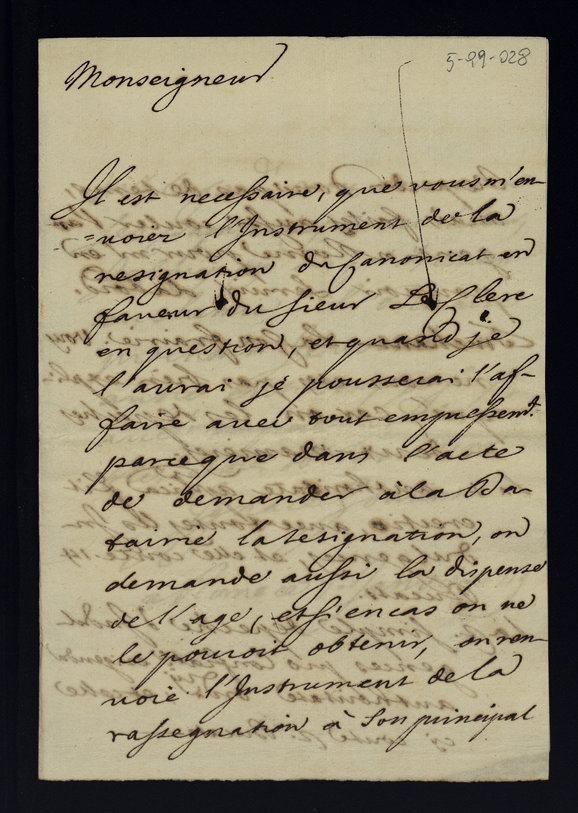 5-29-028
Monseigneur
Il est necessaire, que vous m'en-
=voier l'Instrument de la
resignation du Canonicat en
faveur du sieur Le Clerc
en question, et quand je
l'aurai je pousserai l'af-
faire avec tout empressemt.
parceque dans l'acte
de demander à la Da-
tairie la resignation, on
demande aussi la dispense
de l'age, et si en cas on ne
le pouvoit obtenir, on ren-
voie l'Instrument de la
rassegnation à son principal